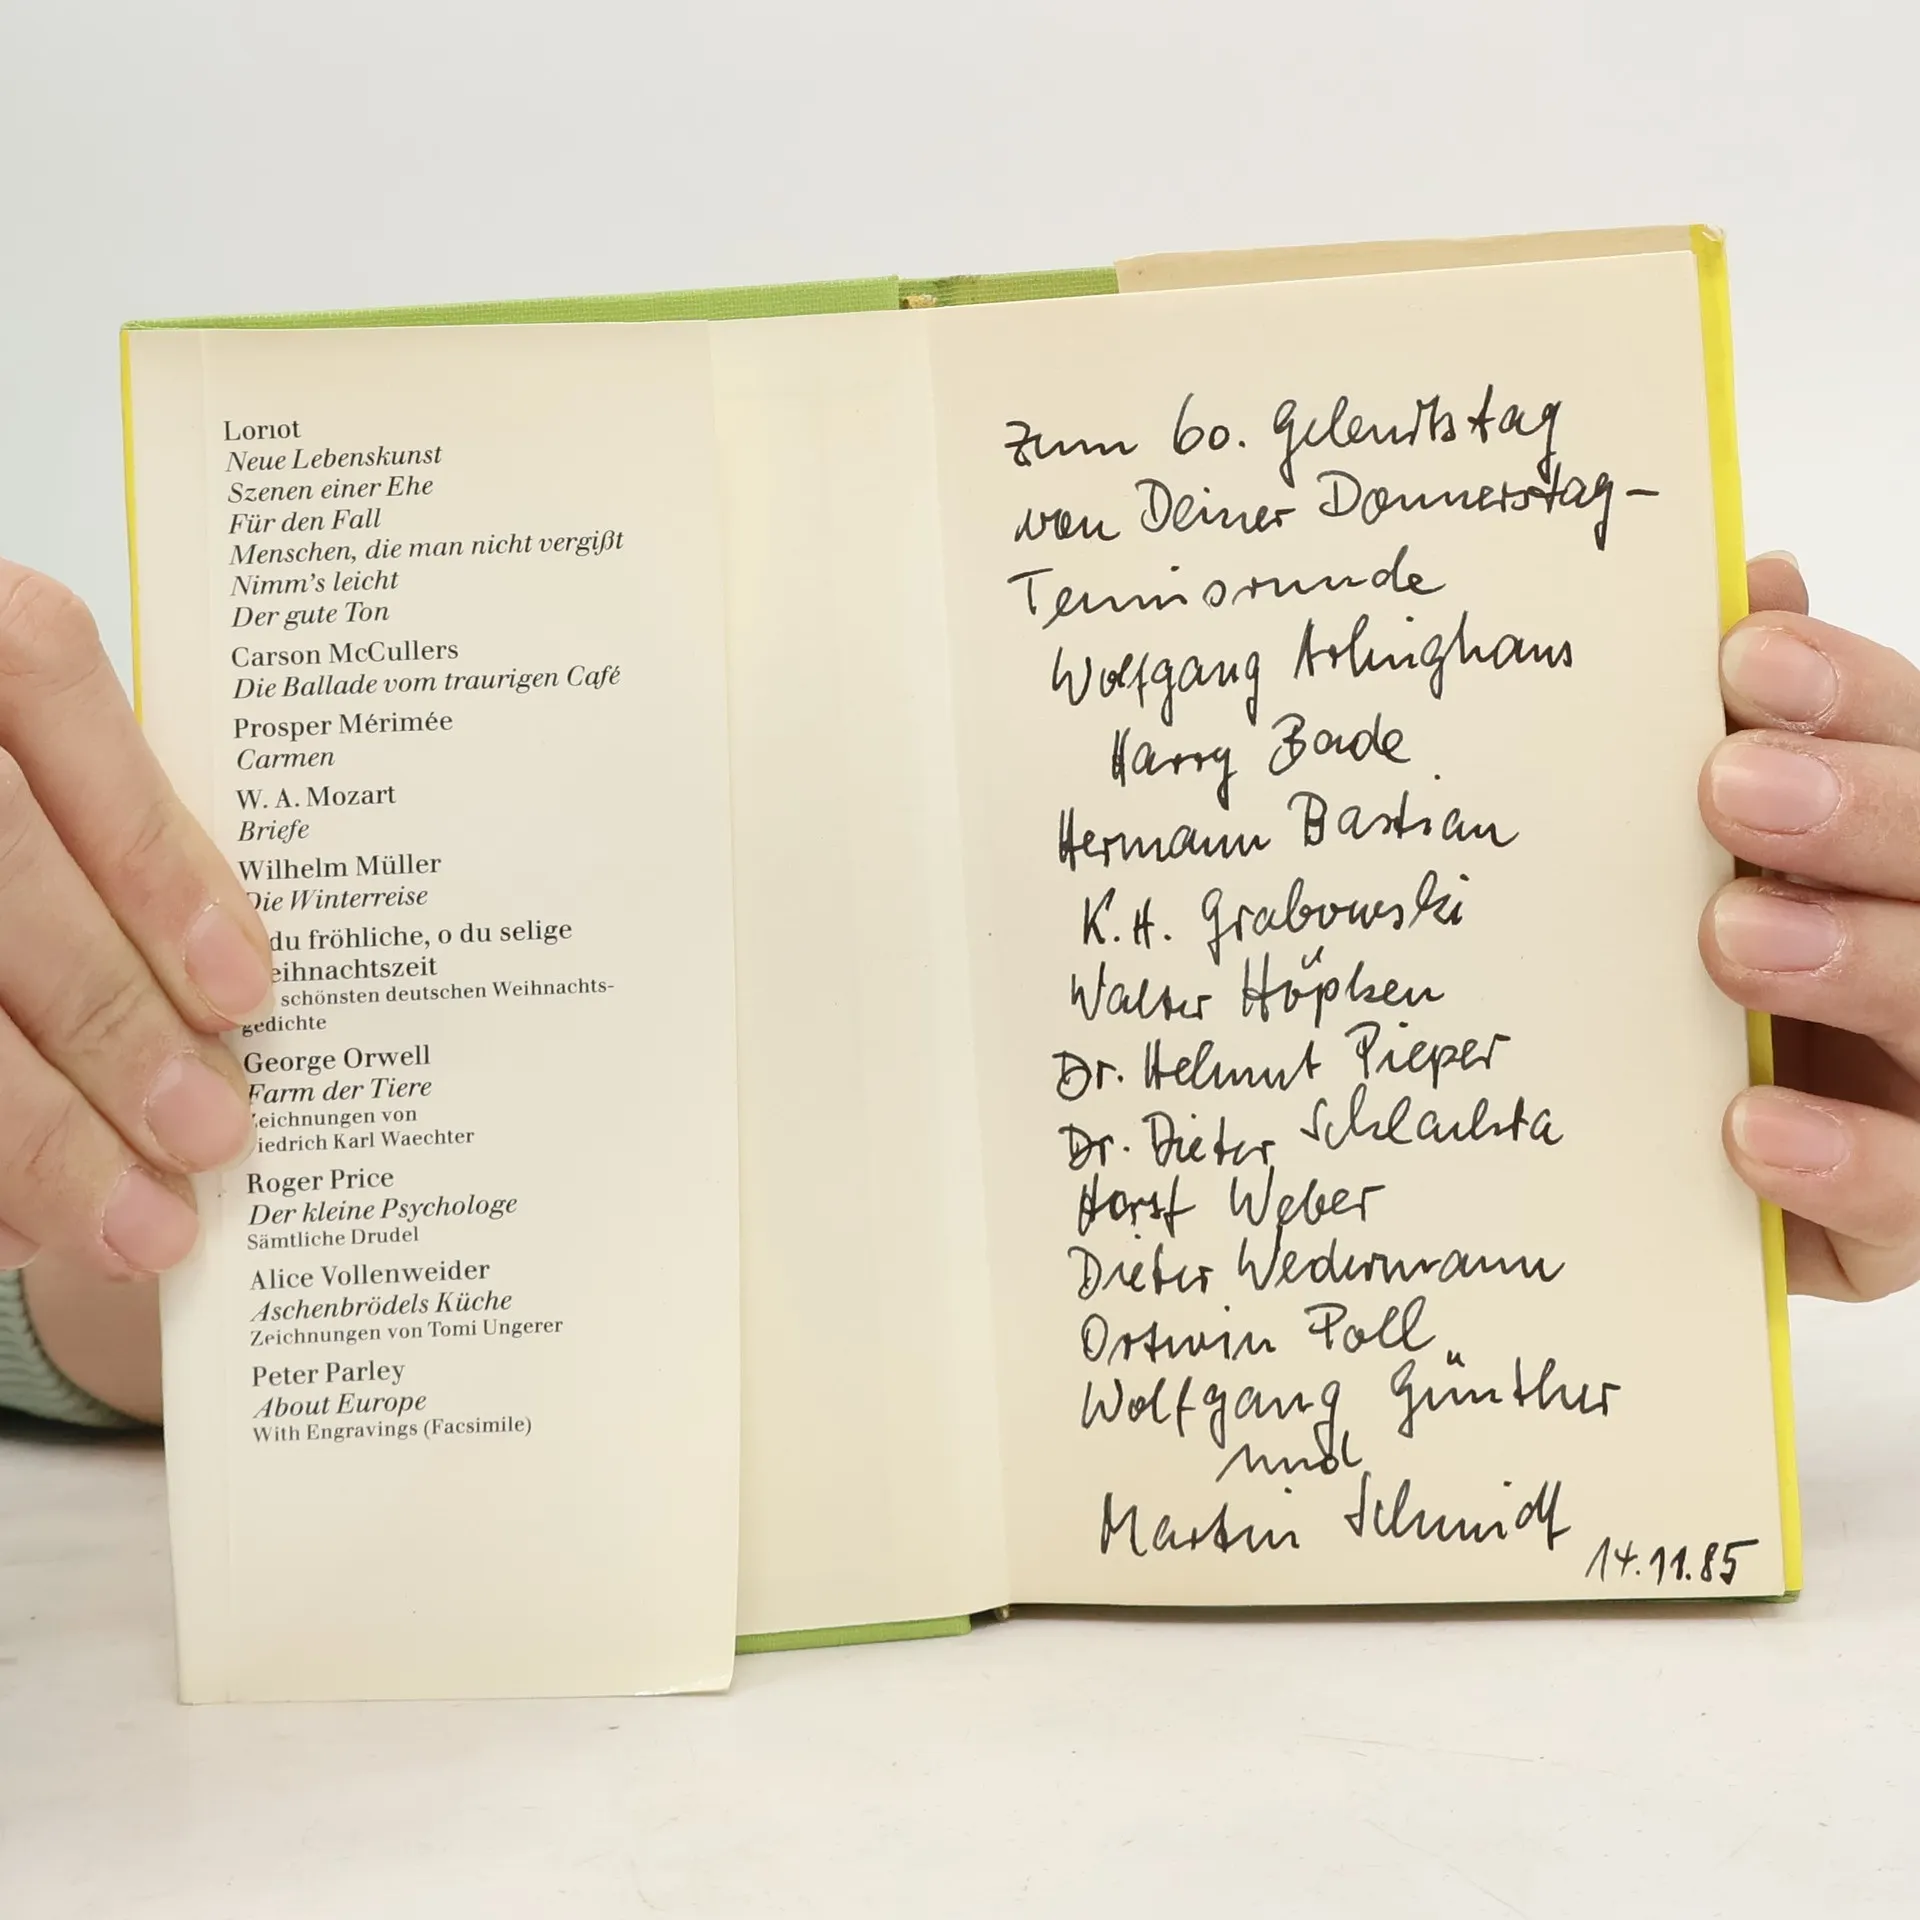 Loriot
Neue Lebenskunst
Szenen einer Ehe
Für den Fall
Menschen, die man nicht vergißt
Nimm's leicht
Der gute Ton
Carson McCullers
Die Ballade vom traurigen Café
Prosper Mérimée
Carmen
W. A. Mozart
Briefe
Wilhelm Müller
Die Winterreise
du fröhliche, o du selige
eihnachtszeit
schönsten deutschen Weihnachts-
gedichte
George Orwell
Farm der Tiere
Zeichnungen von
iedrich Karl Waechter
Roger Price
Der kleine Psychologe
Sämtliche Drudel
Alice Vollenweider
Aschenbrödels Küche
Zeichnungen von Tomi Ungerer
Peter Parley
About Europe
With Engravings (Facsimile)
Zum 60. Geburtstag
von Deiner Donnerstag-
Tennisrunde
Wolfgang Arlinghaus
Harry Bade
Hermann Bastian
K.H. Grabowski
Walter Höpken
Dr. Helmut Pieper
Dr. Dieter Schlachta
Horst Weber
Dieter Wedermann
Ortwin Poll
Wolfgang Günther
und
Martin Schmidt
14.11.85